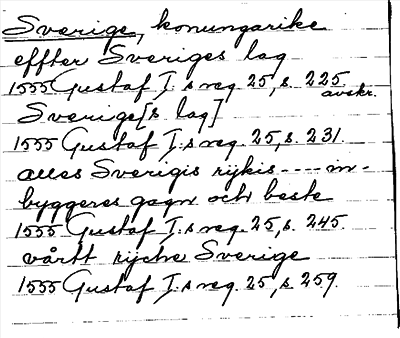 Sverige, konungarike
effter Sveriges lag
1555 Gustaf I:s reg. 25, s. 225.
avskr.
Sverige[s lag]
1555 Gustaf I:s reg. 25, s. 231.
alles Sverigis rijkis ---- in-
byggeres gagn och beste
1555 Gustaf I:s reg. 25, s. 245.
vårtt rijche Sverige
1555 Gustaf I:s reg. 25, s. 259.